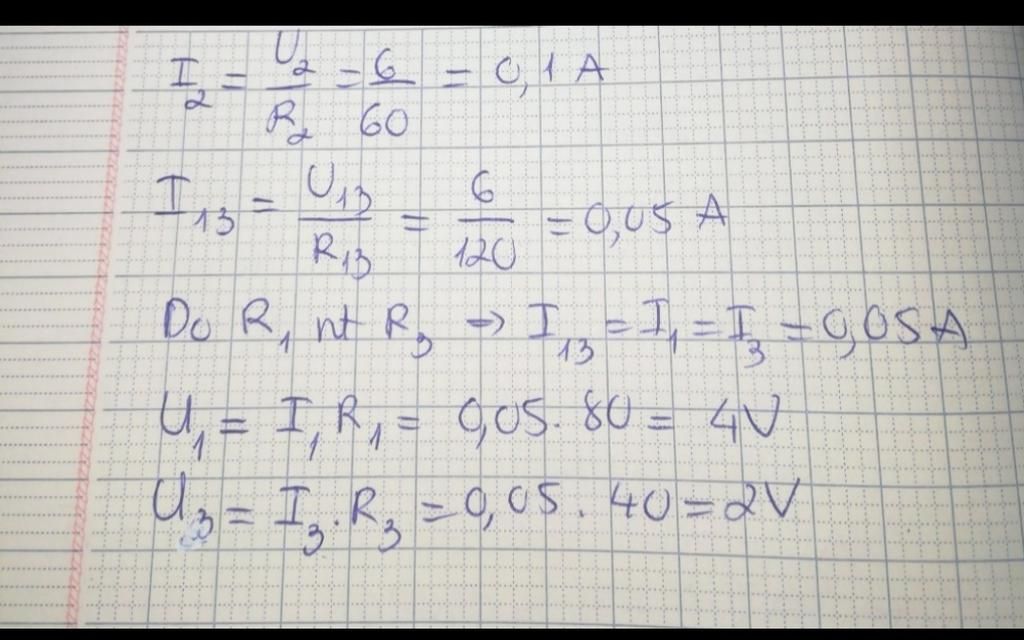 I₂ = U₂/R₂ = 6/60 = 0,1 A
I₁₃ = U₁₃/R₁₃ = 6/120 = 0,05 A
Do R₁ nt R₃ → I₁₃ = I₁ = I₃ = 0,05 A
U₁ = I₁ R₁ = 0,05 . 80 = 4V
U₃ = I₃ . R₃ = 0,05 . 40 = 2V